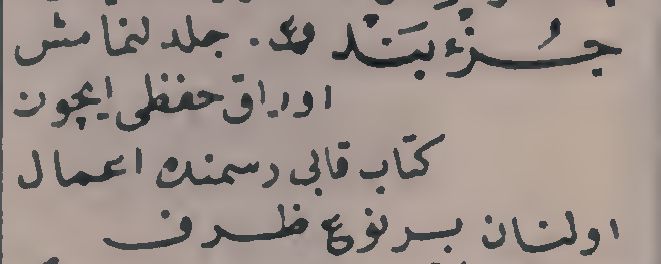 جُزْءبَنْد ع. جلدلنمامش
اوراق حفظی ایچون
کتاب قابی رسمنده اعمال
اولنان بر نوع ظرف